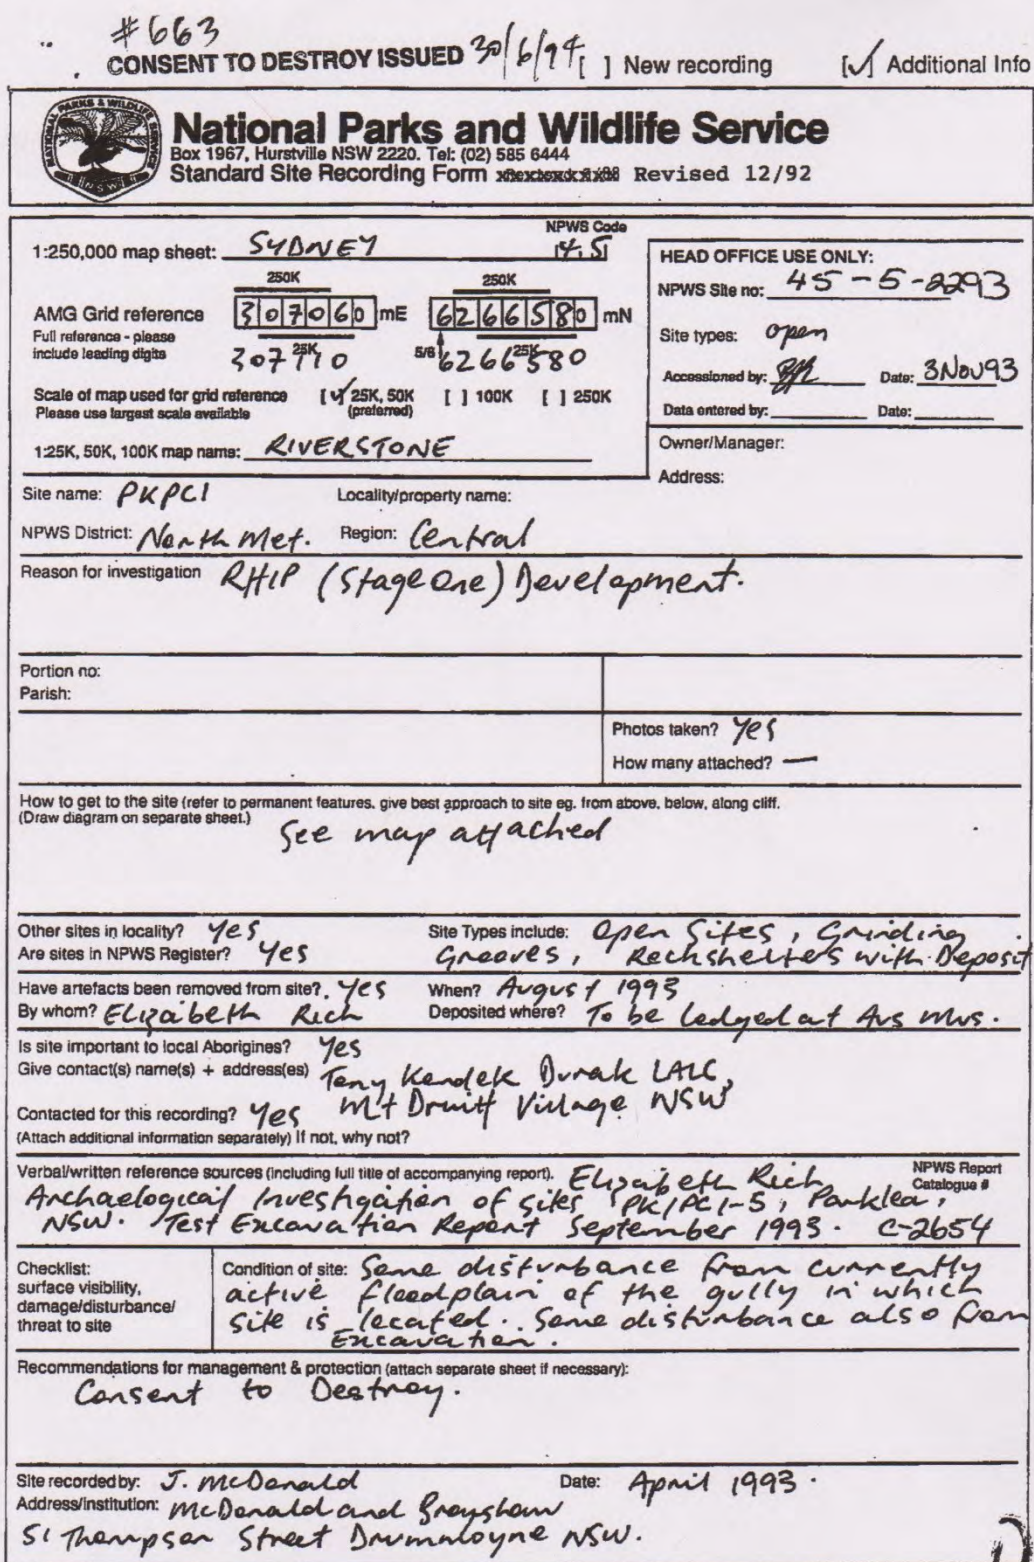 #663
CONSENT TO DESTROY ISSUED 30/6/94 [ ] New recording [✓] Additional Info
NATIONAL PARKS & WILDLIFE SERVICE
N.S.W.
National Parks and Wildlife Service
Box 1967, Hurstville NSW 2220. Tel: (02) 585 6444
Standard Site Recording Form Revised 12/92
1:250,000 map sheet: SYDNEY NPWS Code 4.5
HEAD OFFICE USE ONLY:
NPWS Site no: 45-5-2293
250K 250K
AMG Grid reference 307060 mE 6266580 mN
Full reference - please include leading digits
25K 5/6 25K
307110 6266580
Site types: open
Accessioned by: Date: 3Nov93
Scale of map used for grid reference [✓] 25K, 50K [ ] 100K [ ] 250K
Please use largest scale available (preferred)
Data entered by: Date:
1:25K, 50K, 100K map name: RIVERSTONE
Owner/Manager:
Address:
Site name: PKPC1 Locality/property name:
NPWS District: North Met. Region: Central
Reason for investigation RHIP (Stage One) Development.
Portion no:
Parish:
Photos taken? Yes
How many attached? —
How to get to the site (refer to permanent features. give best approach to site eg. from above, below, along cliff.
(Draw diagram on separate sheet.) See map attached
Other sites in locality? Yes Site Types include: Open Sites, Grinding
Are sites in NPWS Register? Yes Grooves, Rockshelters with Deposit
Have artefacts been removed from site?. Yes When? August 1993
By whom? Elizabeth Rich Deposited where? To be lodged at Aus Mus.
Is site important to local Aborigines? Yes
Give contact(s) name(s) + address(es) Tony Kondek Durak LALC,
Contacted for this recording? Yes Mt Druitt Village NSW
(Attach additional information separately) If not, why not?
Verbal/written reference sources (including full title of accompanying report). Elizabeth Rich NPWS Report Catalogue #
Archaelogical Investigation of sites PK/PC1-5, Parklea,
NSW. Test Excavation Report September 1993. C-2654
Checklist:
surface visibility,
damage/disturbance/
threat to site
Condition of site: Some disturbance from currently
active floodplain of the gully in which
site is located. Some disturbance also from
Excavation.
Recommendations for management & protection (attach separate sheet if necessary):
Consent to Destroy.
Site recorded by: J. McDonald Date: April 1993.
Address/institution: McDonald and Brayshaw
51 Thompson Street Drummoyne NSW.